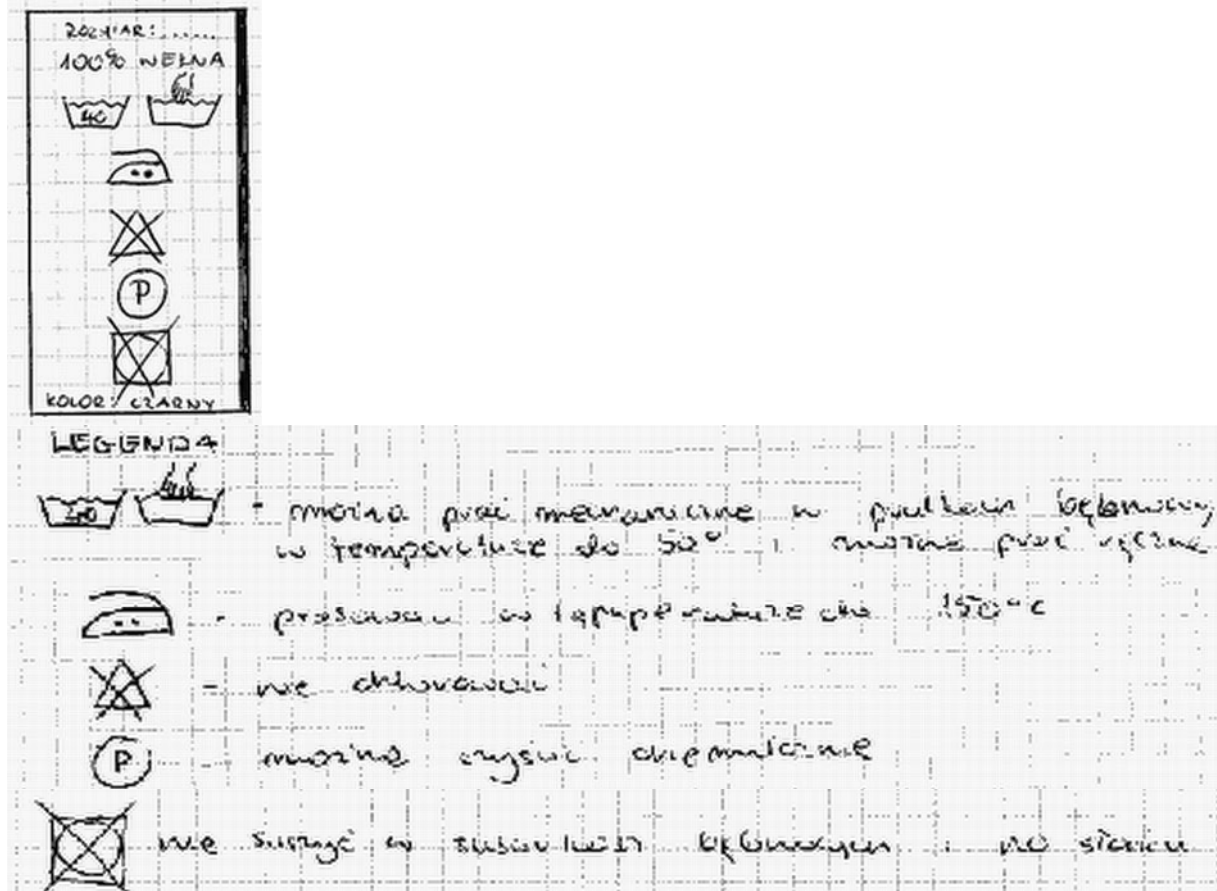 ROZMIAR: ......
100% WEŁNA
40
P
KOLOR: CZARNY
LEGENDA
- można prać mechanicznie w pralkach bębnowych
w temperaturze do 50° i można prać ręcznie
- prasować w temperaturze do 150°C
- nie chlorować
P - można czyścić chemicznie
nie suszyć w suszarkach bębnowych i na słońcu